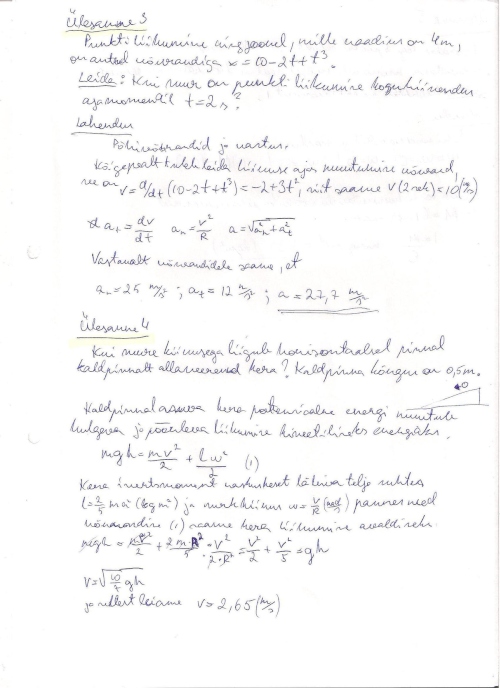 Ülesanne 3
Punkti liikumine ringjoonel, mille raadius on 4m,
on antud võrrandiga x = 10 - 2t + t³.
Leida: Kui suur on punkti liikumise kogukiirendus
ajamomendil t = 2 s?
Lahendus
Põhivõrrandid ja vastus.
Kõigepealt tuleb leida kiiruse ajas muutumise võrrand,
see on v = d/dt (10 - 2t + t³) = -2 + 3t², siit saame v(2sek) = 10 (m/s)
a_t = dv/dt  a_n = v²/R  a = √(a_n² + a_t²)
Vastavalt võrranditele saame, et
a_n = 25 m/s² ; a_t = 12 m/s² ; a = 27,7 m/s²
Ülesanne 4
Kui suure kiirusega liigub horisontaalsel pinnal
kaldpinnalt allaveerenud kera? Kaldpinna kõrgus on 0,5m.
Kaldpinnal asuva kera potentsiaalne energia muutub
kulgeva ja pöörleva liikumise kineetiliseks energiaks.
mgh = mv²/2 + Iω²/2 (1)
Kera inertsmoment raskuskeset läbiva telje suhtes
I = 2/5 mR² (kg m²) ja nurkkiirus ω = v/R (rad/s) pannes need
võrrandisse (1) saame kera liikumise avaldiseks
mgh = mv²/2 + 2m·R²/5 · v²/2·R² = v²/2 + v²/5 = gh
v = √(10/7 gh)
ja sellest leiame v = 2,65 (m/s)